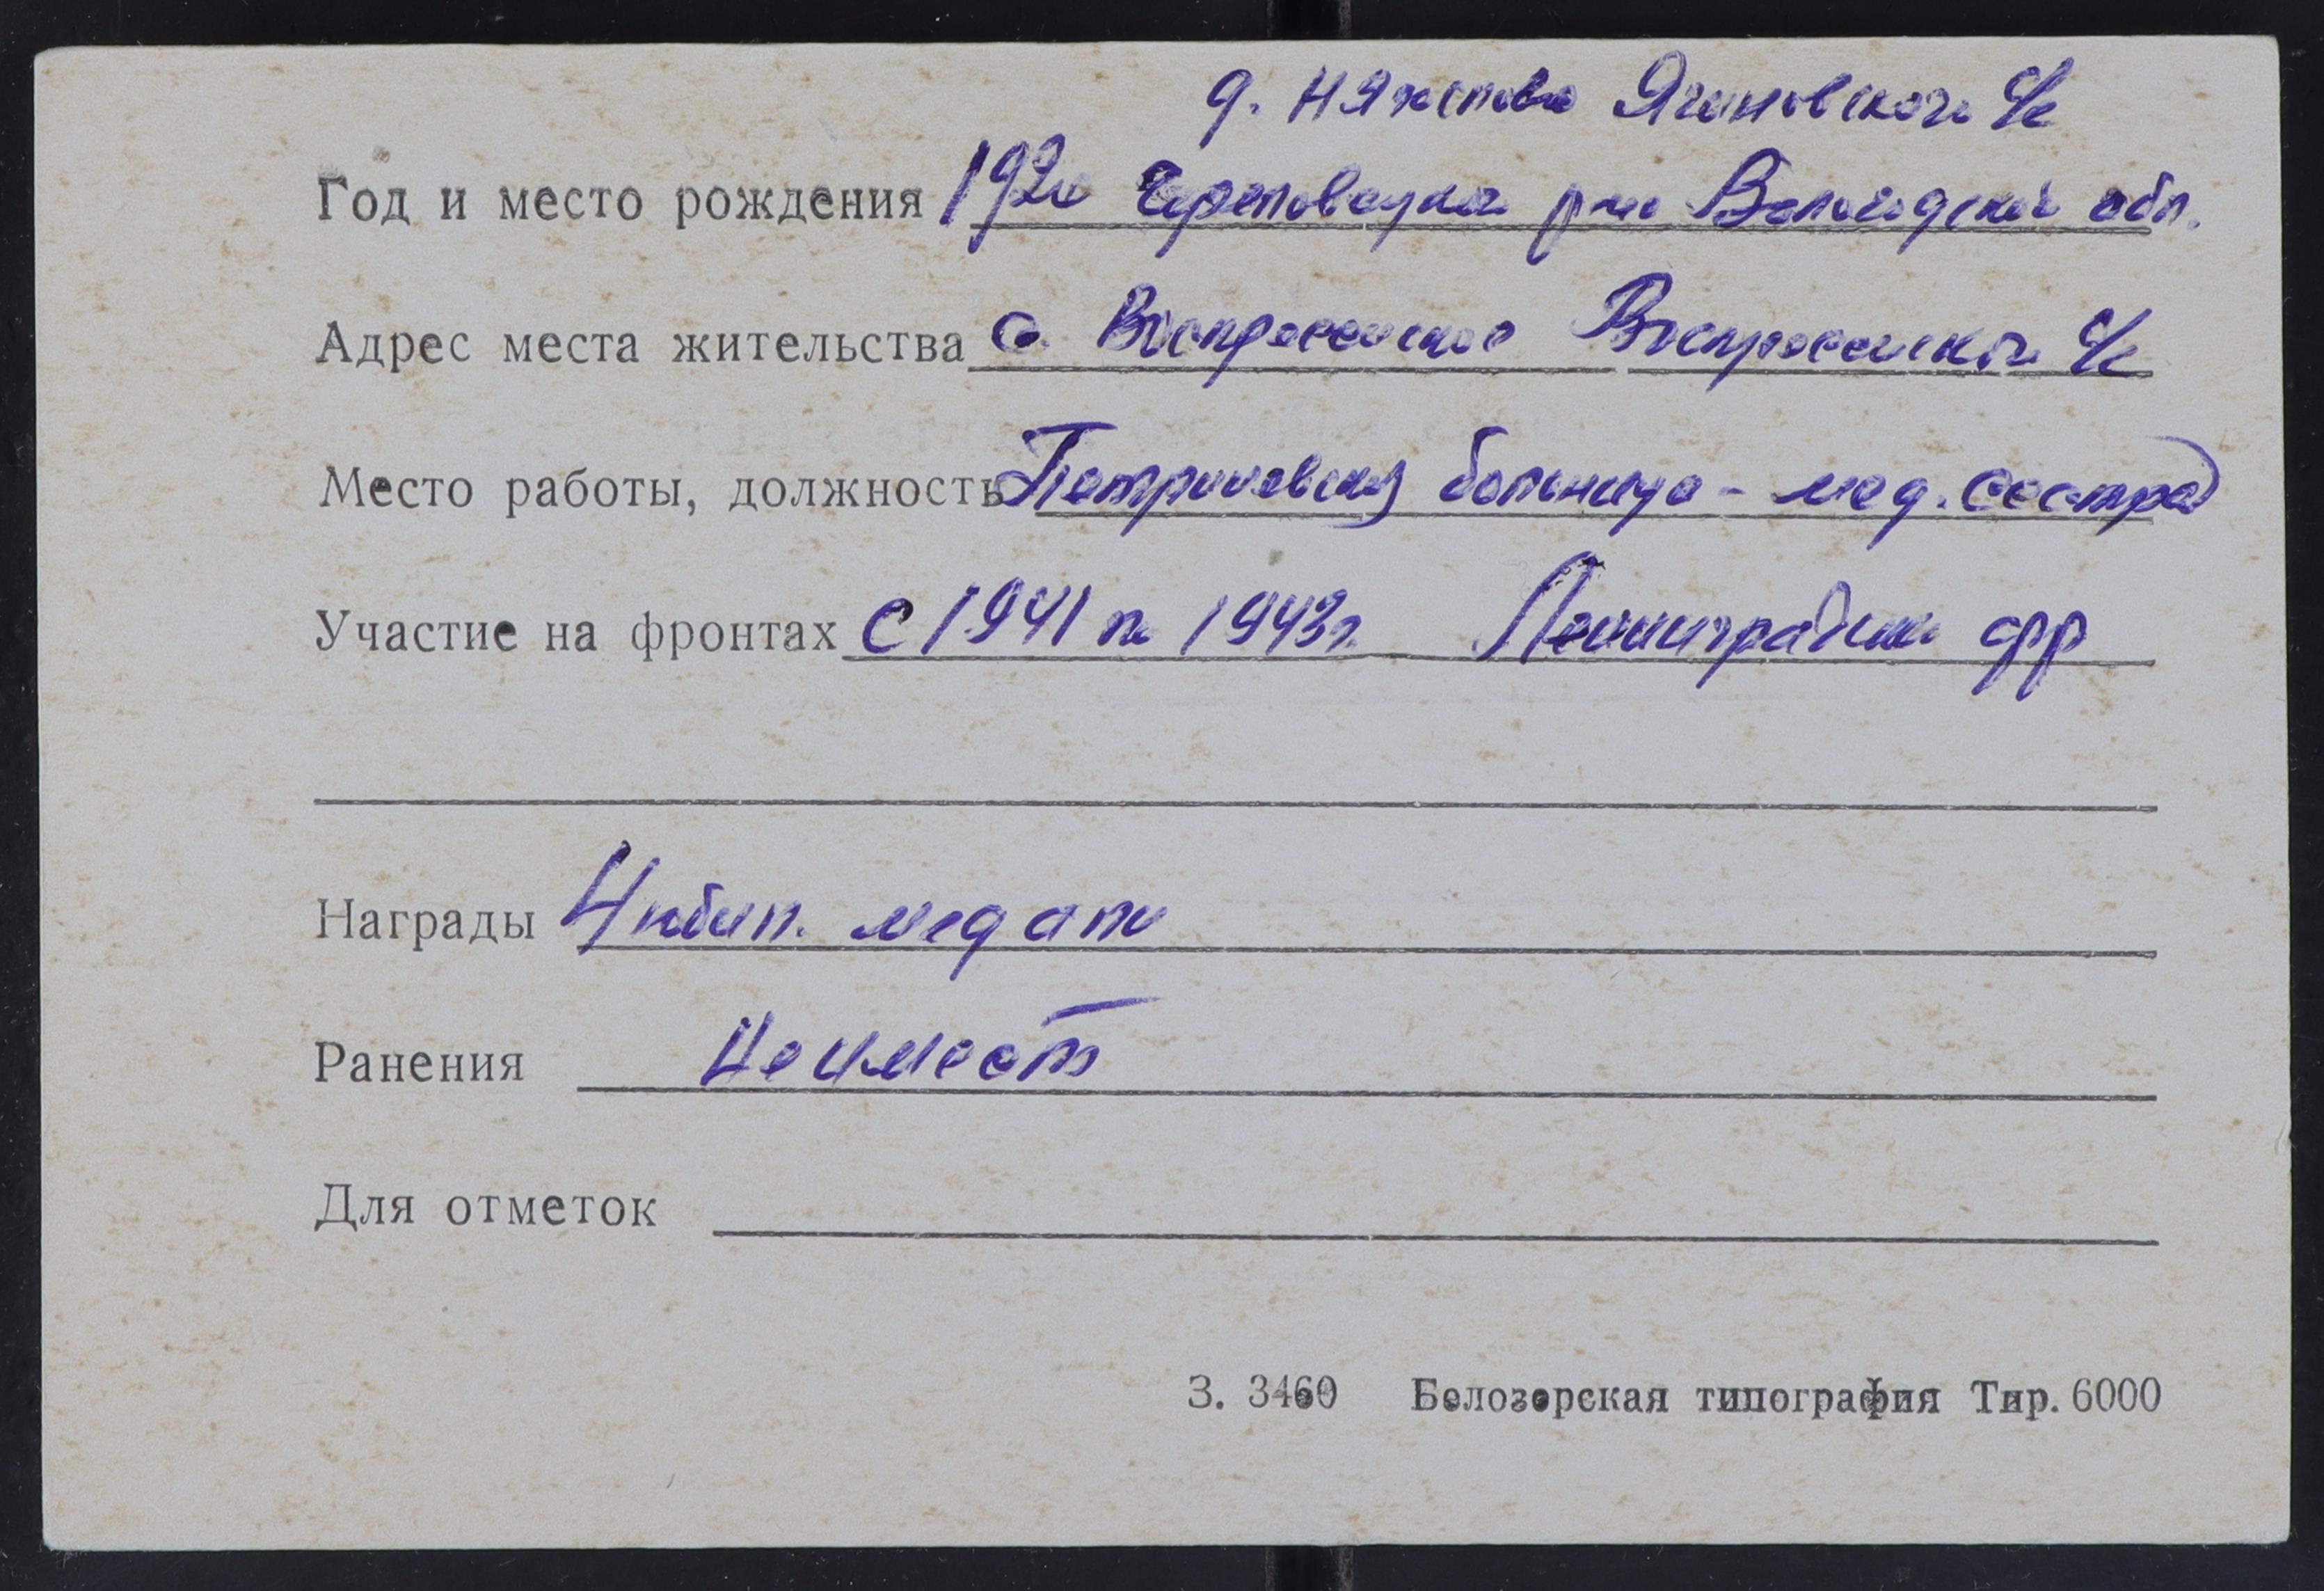 д. Няжстово Ягановского с/с
Год и место рождения 1920 Череповецкого р-на Вологодской обл.
Адрес места жительства с. Воскресенское Воскресенского с/с
Место работы, должность Петриневская больница - мед. сестра
Участие на фронтах с 1941 по 1943г. Ленинградский фр
Награды 4 юбил. медали
Ранения Не имеет
Для отметок
З. 3460 Белозерская типография Тир. 6000